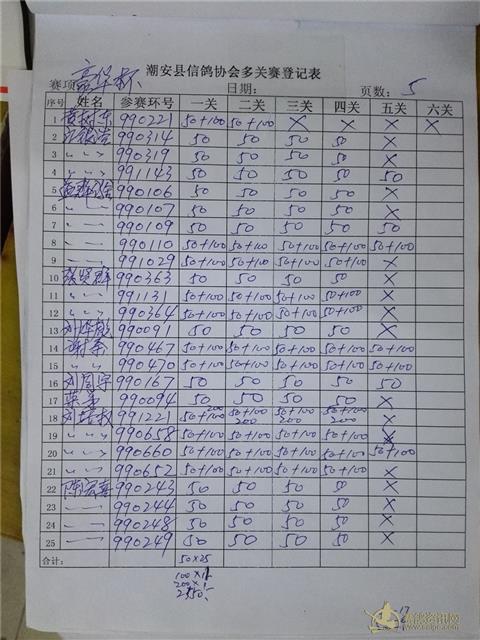 潮安县信鸽协会多关赛登记表
赛项: 高华杯 日期: 页数: 5
序号 姓名 参赛环号 一关 二关 三关 四关 五关 六关
1 990221 50+100 50+100 × × × ×
2 990314 50 50 50 50 ×
3 〃 〃 990319 50 50 50 50 ×
4 〃 〃 991143 50 50 50 50 50
5 990106 50 50 50 50 ×
6 〃 〃 990107 50 50 50 50 ×
7 990109 50 50 50 50 50
8 990110 50+100 50+100 50+100 50+100 50+100
9 991029 50+100 50+100 50+100 50+100 ×
10 990363 50 50 50 50 ×
11 〃 〃 991131 50+100 50+100 50+100 50+100 ×
12 〃 〃 990364 50+100 50+100 50+100 50+100 ×
13 990091 50 50 50 50 ×
14 990467 50+100 50+100 50+100 50+100 50+100
15 〃 〃 990470 50+100 50+100 50+100 50+100 50+100
16 990167 50 50 50 50 50
17 990094 50 50 50 50 ×
18 991221 50+100 200 50+100 200 50+100 200 50+100 200 ×
19 〃 〃 990658 50+100 50+100 50+100 50+100 ×
20 〃 〃 990660 50+100 50+100 50+100 50+100 50+100
21 〃 〃 990652 50+100 50+100 50+100 50+100 ×
22 990243 50 50 50 50 ×
23 990244 50 50 50 50 ×
24 990248 50 50 50 50 ×
25 990249 50 50 50 50 ×
合计:
50×25
200×1